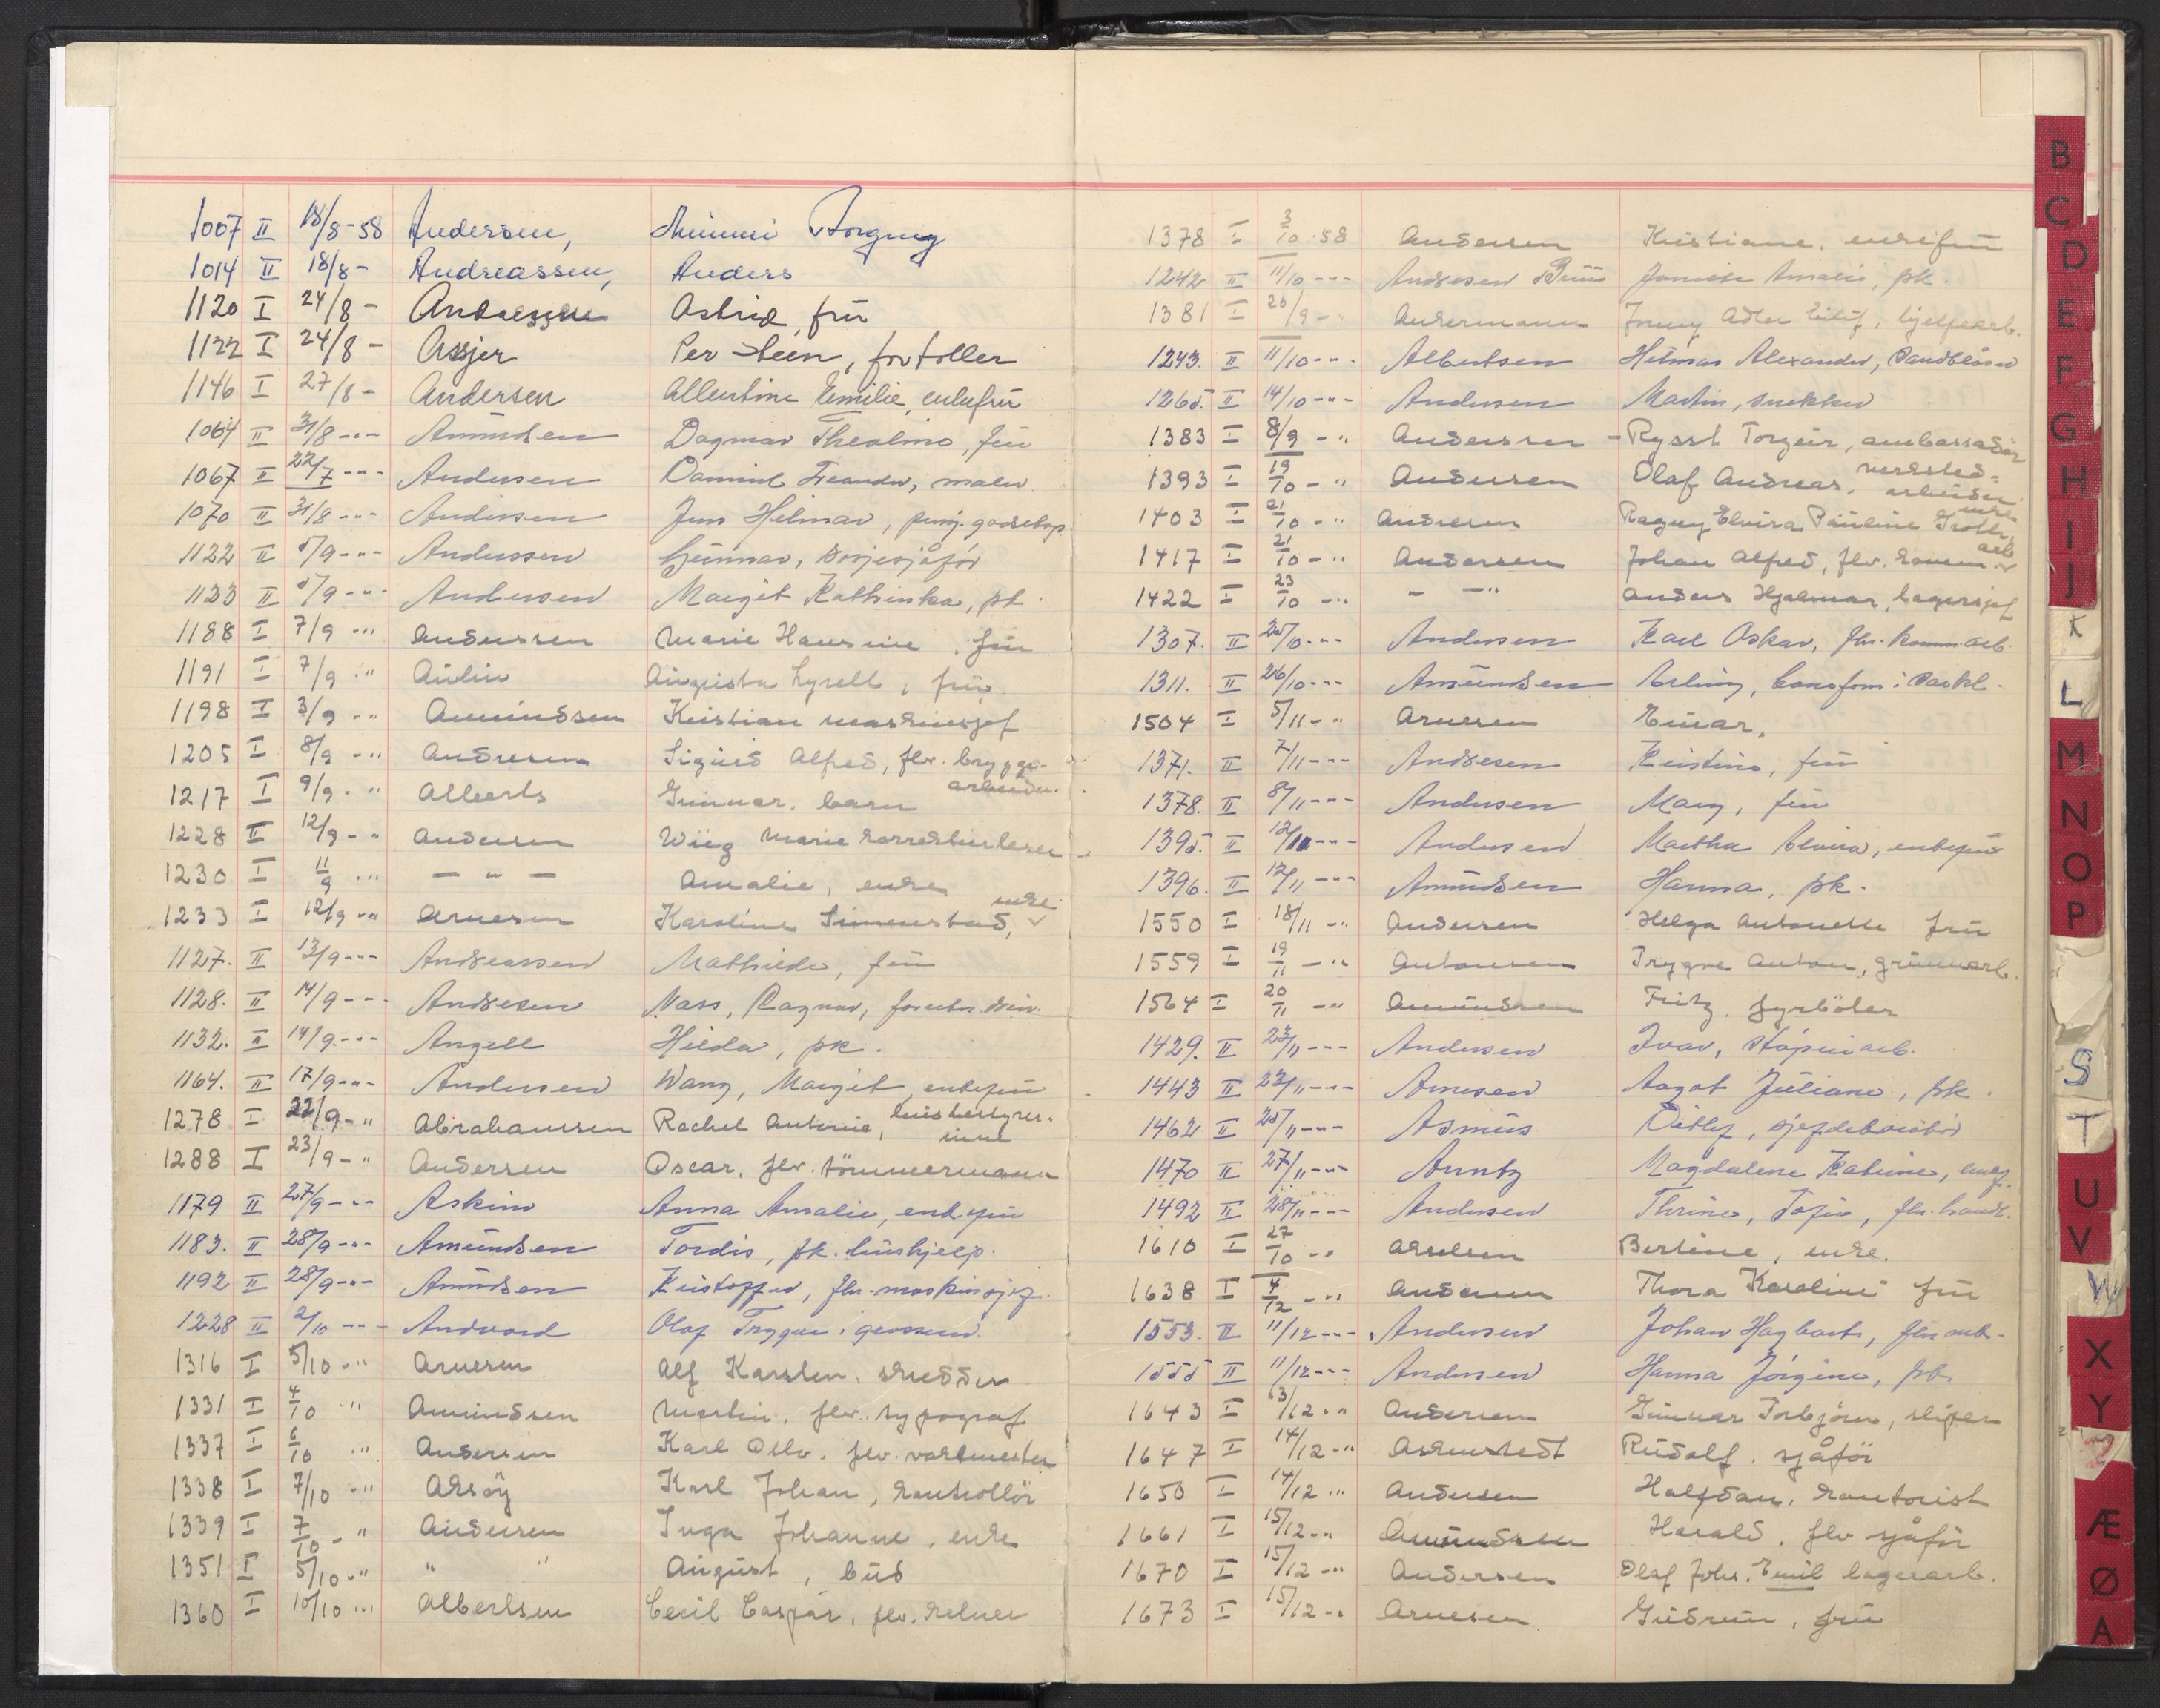 1007 II 18/8-58 Andersen, Mimmi Torgny
1014 II 18/8 - Andreassen, Anders
1120 I 24/8 - Andressen Astrid, frü
1122 I 24/8 - Assjer Per Steen, fortoller
1146 I 27/8 - Andersen Albertine Emilie, enkefrü
1064 II 31/8 -"- Amündsen Dagmar Theoline, frü
1067 II 22/7 -"- Andersen Leander, maler
1070 II 31/8 -"- Andersen Jens Hilmar,
1122 II 5/9 -"- Anderssen Günnar,
1123 II 5/9 -"- Andersen Margit Kathinka, pk.
1188 I 7/9 -"- Anderssen Marie Hansine, frü
1191 I 7/9 -"- Aülin Aügüsta Lyrell, frü
1198 I 3/9 -"- Amündsen Kristian maskinsjef
1205 I 8/9 -"- Andresen Sigürd Alfred, flv. brygge-
arbeider.
1217 I 9/9 -"- Alberts Günnar, barn
1228 I 12/9 -"- Andersen Wiig Marie korrekturleser
1230 I 11/9 -"- — " — Amalie, enke
1233 I 12/9 -"- Arnesen Karoline Simenstad, enke
1127. II 13/9 -"- Andreassen Mathilde, frü
1128. II 14/9 -"- Andresen Nass, Ragnar,
1132. II 14/9 -"- Angell Hilda, pk.
1164. II 17/9 -"- Andersen Wang, Margit, enkefrü
1278 I 22/9 -"- Abrahamsen Rachel Antonie, hüsbestyrer-
inne
1288 I 23/9 -"- Andersen Oscar, flv. tömmermann
1179 II 27/9 -"- Askim Anna Amalie, enkefrü
1183. II 28/9 -"- Amündsen Tordis, fk. hüshjelp.
1192 II 28/9 -"- Amündsen Kristoffer, fhv. maskinsjef.
1228 II 2/10 -"- Andvord Olaf Trygve, grosserer.
1316 I 5/10 -"- Arnesen Alf Karsten, skredder
1331 I 4/10 -"- Amündsen Martin, flv. typograf
1337 I 6/10 -"- Andersen Karl Oslv. flv. vaktmester
1338 I 7/10 -"- Aksöy Karl Johan, kontrollör
1339 I 7/10 -"- Andersen Inga Johanne, enke
1351 I 5/10 -"- " " Aügüst, büd
1360 I 10/10 -"- Albertsen Cecil Caspar, flv. kelner
1378 I 3/10 -58 Andersen Kristiane, enkefrü
1242 II 11/10 -"- Andresen Amalie, pk.
1381 I 26/9 -" Ankermann Jonny Adler, hjelpearb.
1243. II 11/10 -"- Albertsen Hilmar Alexander, Sandblåser
1265. II 14/10 -"- Andersen Martin, snekker
1383 I 8/9 -" Anderssen - Rysst Torgeir, ambassadör
1393 I 19/10 -" Andersen Olaf Andreas, verksted-
arbeider
1403 I 21/10 -" Andresen Ragny Elvira Paüline, enke
1417 I 21/10 -" Andersen Johan Alfred, flv. komm. arb
1422 I 23/10 -" " -" Anders Hjalmar, lagersjef
1307. II 25/10 -"- Andersen Karl Oskar, fhv. komm.arb.
1311. II 26/10 -"- Amündsen Erling,
1504 I 5/11 -" Arnesen Einar,
1371. II 7/11 -"- Andresen Kristine, frü
1378. II 8/11 -"- Andersen Mary, frü
1395. II 12/11 -"- Andersen Martha Elvira, enkefrü
1396. II 12/11 -"- Amündsen Hanna, pk.
1550 I 18/11 -" Andersen Helga Antonette frü
1559 I 19/11 -" Antonsen Trygve Anton, grünnarb.
1564 I 20/11 -" Amündsen Fritz. fyrböter
1429. II 23/11 -"- Andersen Ivar, støperiarb.
1443 II 23/11 -"- Arnesen Aagot Jüliane, pk.
1462 II 25/11 -"- Asmüs Ditlef, sjefdekoratör
1470 II 27/11 -"- Arntz Magdalene Katrine, enkef.
1492 II 28/11 -"- Andersen Thrine, Sofie, fhv. handl.
1610 I 27/10 -" Akselsen Bertine, enke.
1638 I 4/12 -" Andersen Thora Karoline frü
1553. II 11/12 -"- Andersen Johan Hagbart,
1555 II 11/12 -"- Andersen Hanna Jörgine, pk
1643 I 13/12 -" Andersen Günnar Torbjörn, sliper
1647 I 14/12 -" Askerstedt Rüdolf. sjåför
1650 I 14/12 -" Andersen Halfdan, kontorist
1661 I 15/12 -" Amündsen Harald, flv sjåför
1670 I 15/12 -" Andersen Olaf Johs. Emil lagerarb.
1673 I 15/12 -" Arnesen Güdrün, frü
B
C
D
E
F
G
H
I
J
K
L
M
N
O
P
S
T
U
V
W
X
Y
Z
Æ
Ø
A